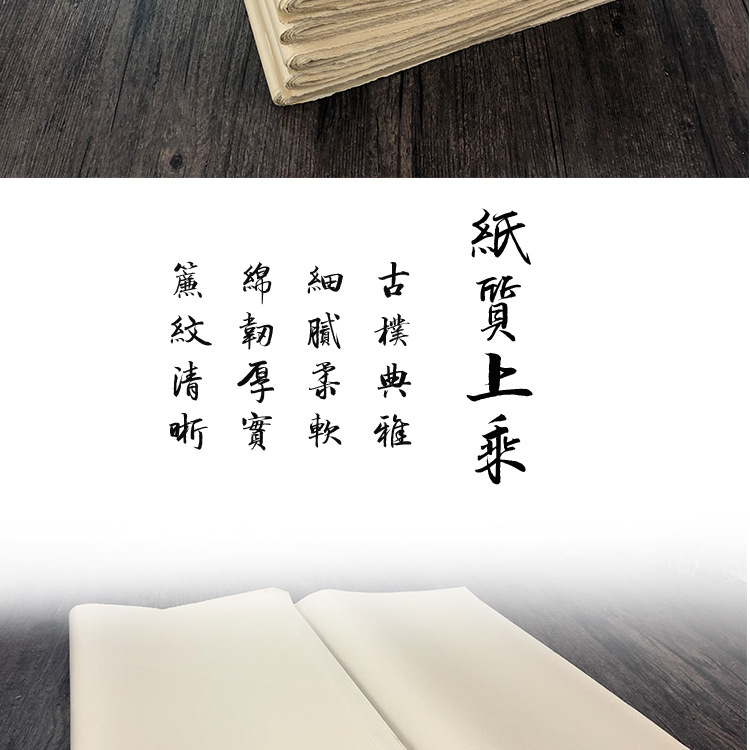 紙質上乘
古樸典雅
細膩柔軟
綿韌厚實
簾紋清晰